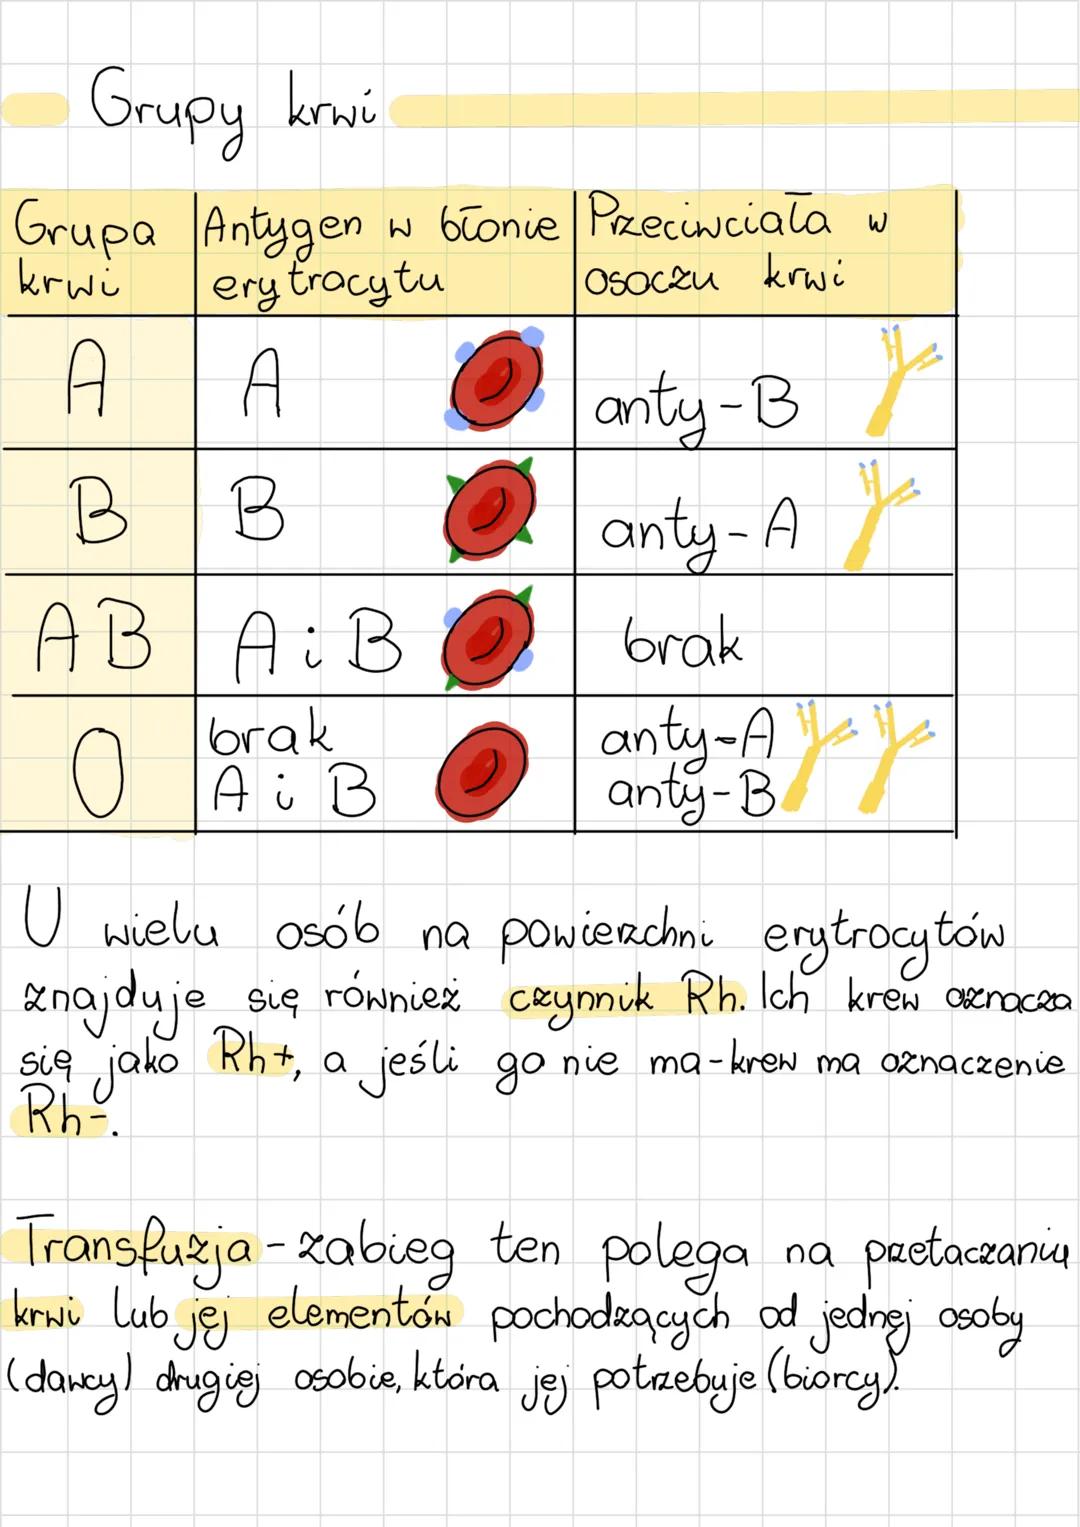 Grupy krwi
Grupa krwi | Antygen w błonie erytrocytu | Przeciwciała w osoczu krwi
A | A | anty-B
B | B | anty-A
AB | A i B | brak
O | brak A i B | anty-A anty-B
U wielu osób na powierzchni erytrocytów
znajduje się również czynnik Rh. Ich krew oznacza
się jako Rh+, a jeśli go nie ma-krew ma oznaczenie
Rh-.
Transfuzja - zabieg ten polega na przetaczaniu
krwi lub jej elementów pochodzących od jednej osoby
(dawcy) drugiej osobie, która jej potrzebuje (biorcy).